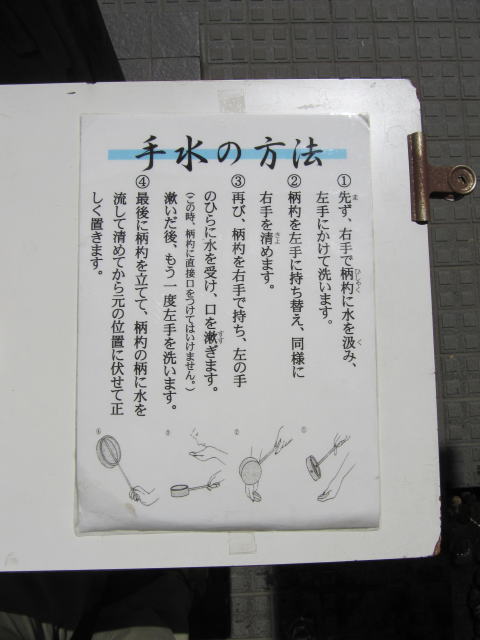 手水の方法
①先ず、右手で柄杓に水を汲み、
左手にかけて洗います。
②柄杓を左手に持ち替え、同様に
右手を清めます。
③再び、柄杓を右手で持ち、左の手
のひらに水を受け、口を漱ぎます。
(この時、柄杓に直接口をつけてはいけません。)
漱いだ後、もう一度左手を洗います。
④最後に柄杓を立てて、柄杓の柄に水を
流して清めてから元の位置に伏せて正
しく置きます。
① ② ③ ④